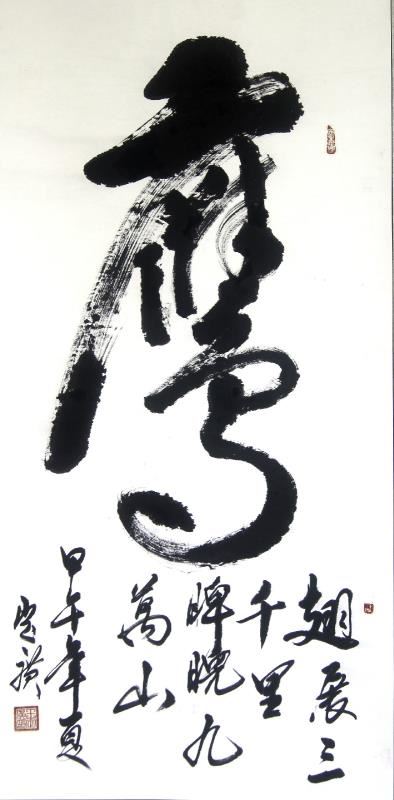 鹰
翅展三
千里
睥睨九
萬山
甲午年夏